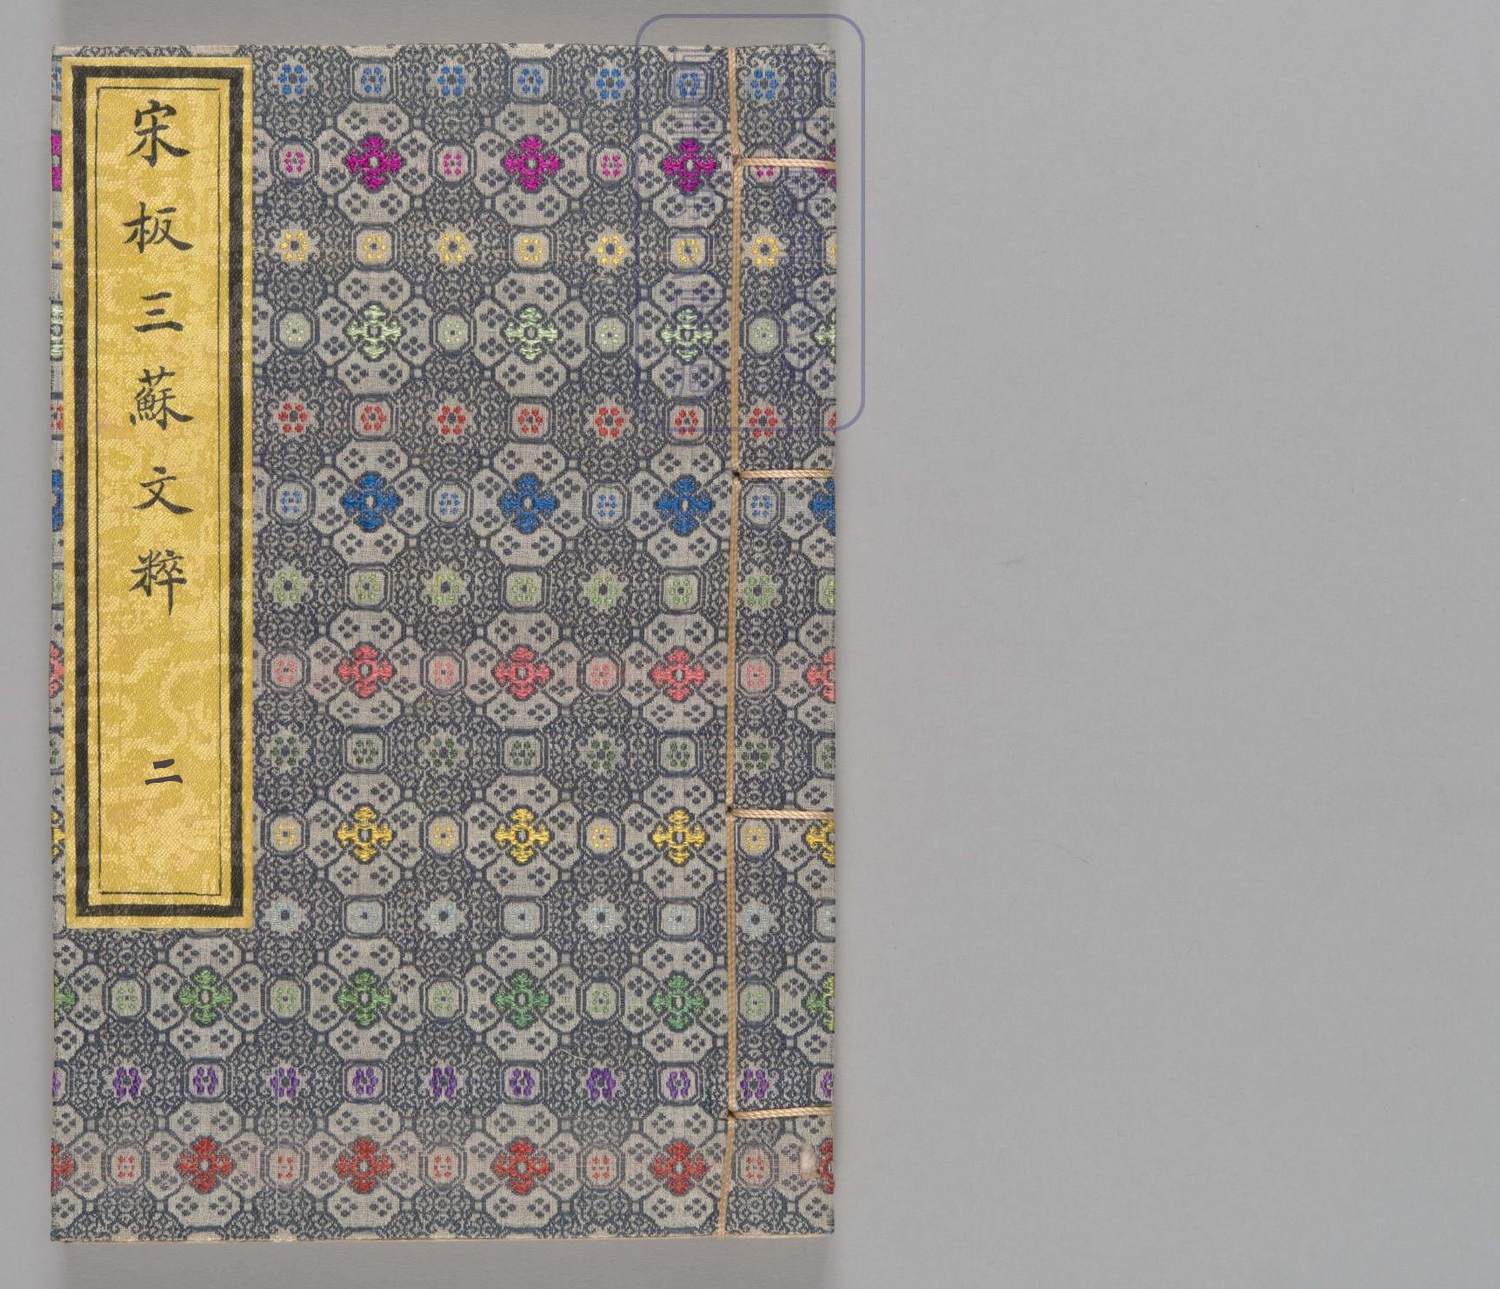 宋板三蘇文粹 二